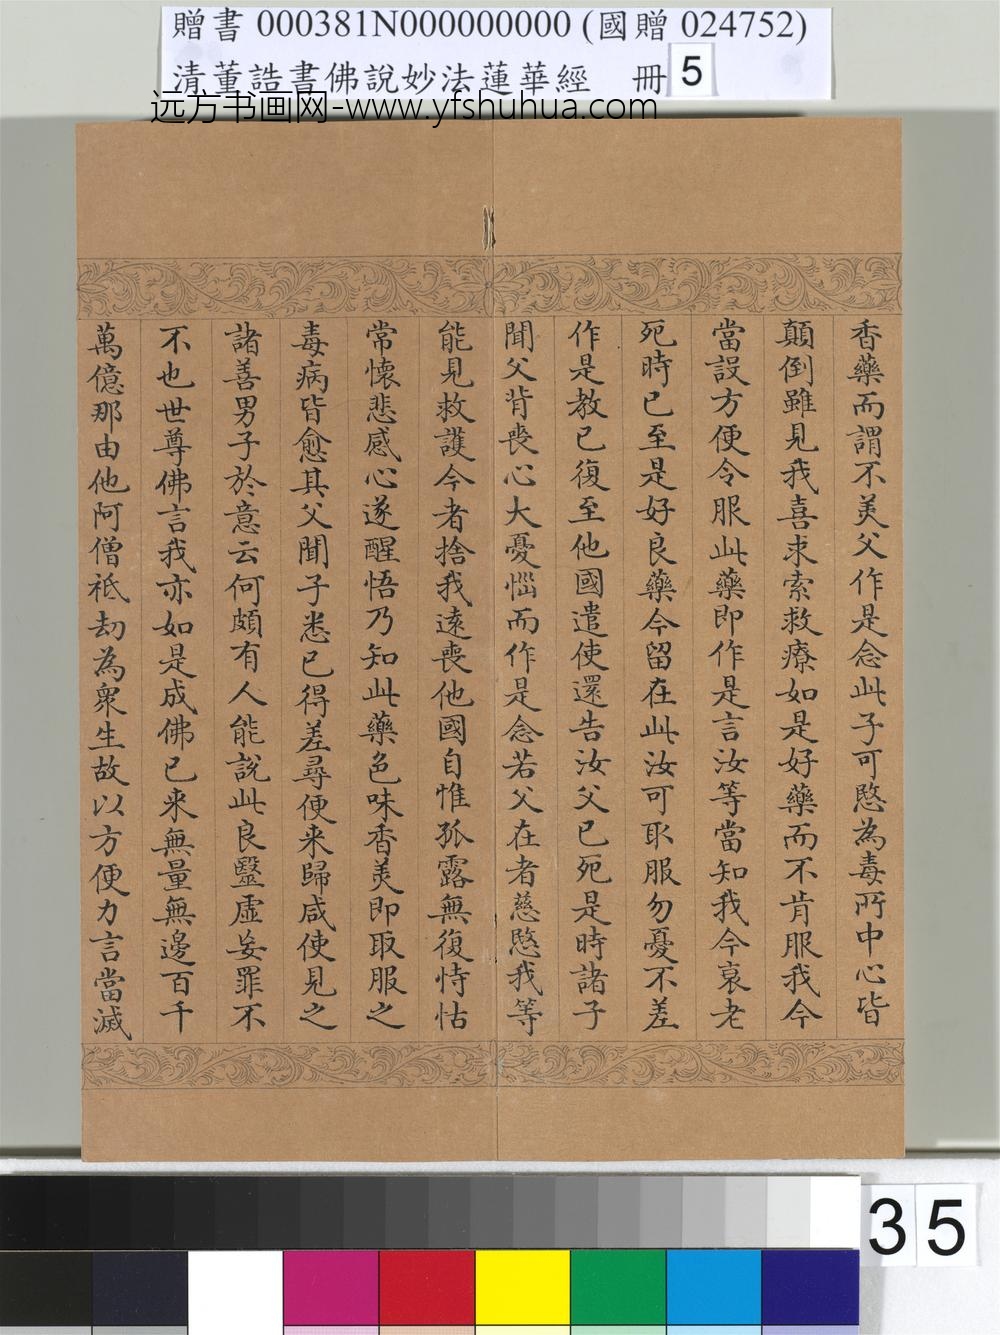 贈書 000381N000000000 (國贈 024752)
清董誥書佛說妙法蓮華經 冊 5
远方书画网-www.yfshuhua.com
香藥而謂不美父作是念此子可愍為毒所中心皆
顛倒雖見我喜求索救療如是好藥而不肯服我今
當設方便令服此藥即作是言汝等當知我今衰老
死時已至是好良藥今留在此汝可取服勿憂不差
作是教已復至他國遣使還告汝父已死是時諸子
聞父背喪心大憂惱而作是念若父在者慈愍我等
能見救護今者捨我遠喪他國自惟孤露無復恃怙
常懷悲感心遂醒悟乃知此藥色味香美即取服之
毒病皆愈其父聞子悉已得差尋便来歸咸使見之
諸善男子於意云何頗有人能說此良毉虛妄罪不
不也世尊佛言我亦如是成佛已来無量無邊百千
萬億那由他阿僧祇劫為衆生故以方便力言當滅
35